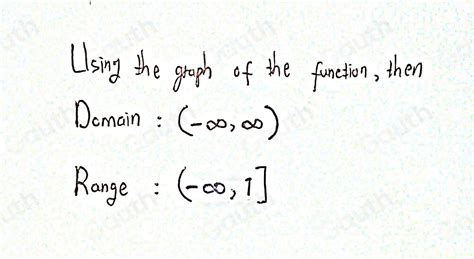 Using the graph of the function, then
Domain : (-∞, ∞)
Range : (-∞, 1]